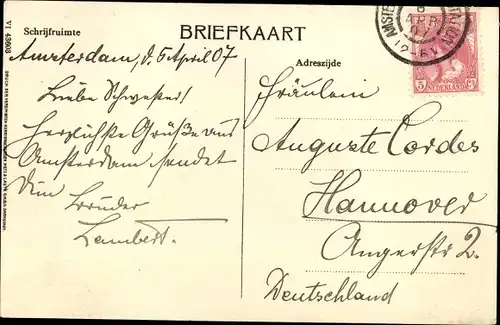 BRIEFKAART
Schrijfruimte
Adreszijde
Amsterdam, d. 5 April 07
Liebe Schwester!
Herzlichste Grüße aus
Amsterdam sendet
Dein Bruder
Lambert.
Fräulein
Auguste Cordes
Hannover
Angerstr. 2.
Deutschland
VI 43603
6
APR
07
12-6
5 Ct
NEDERLAND